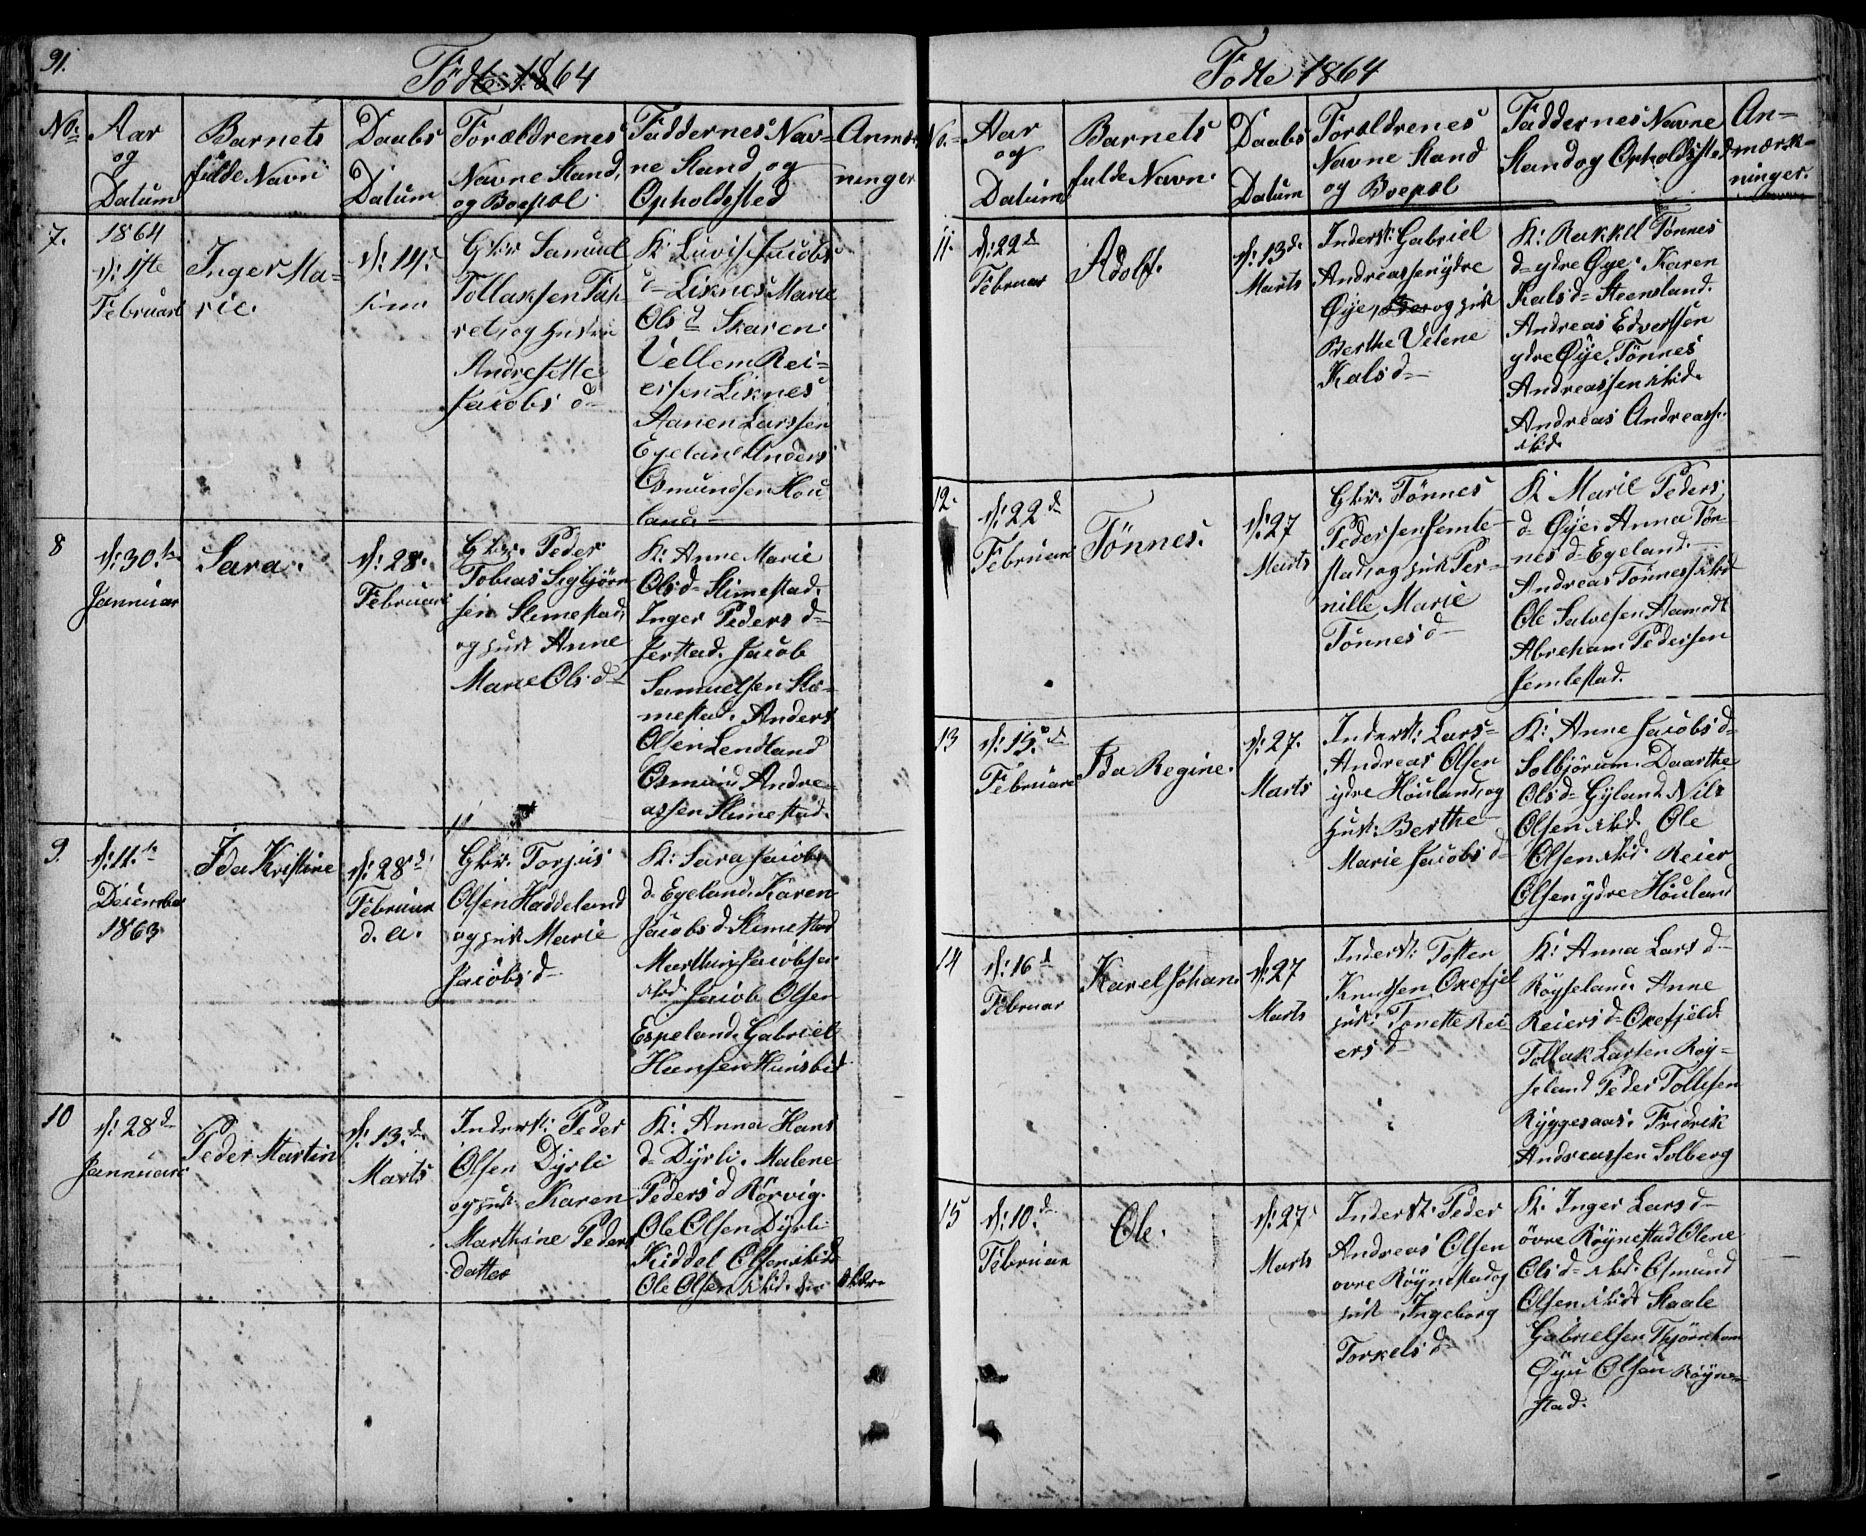 91.
Födte 1864
No.
Aar
og
Datum
Barnets
fulde Navn
Daabs
Datum
Forældrenes
Navne Stand,
og Boepæl
Faddernes Nav=
ne Stand og
Opholdssted
Anmær
ninger
7.
1864
d: 1ste
Februari
Inger Ma=
rie.
d: 14.
Gbr. Samuel
Tollaksen
og hustru
Andresette
Jacobs d-
K: Lovise Jacobs
d- Liknes. Marie
Ols d Skaren
Vellem Rei=
ersen Liknes
Aanen Larssen
Egeland Anders
Osmundsen Hou
land.
8
d: 30.te
Januar
Sara.
d: 28.
Februari
Gbr. Peder
Tobias Sigbjörn
sen Slimestad,
og hust Anne
Marie Ols d-
K: Anne Marie
Ols d- Slimestad.
Inger Peders d-
Jerstad. Jacob
Samuelsen Sli=
mestad. Anders
Olsen Lendland
Osmund Andre=
assen Slimestad.
9.
d: 11.te
December
1863
Ida Kristine
d: 28.d
Februar
d. a.
Gbr. Torjus
Olsen Haddeland
og hust Marie
Jacobs d-
K: Sara Jacobs
d. Egeland. Karen
Jacobs d- Slimestad
Marthin Jacobsen
ibd. Jacob Olsen
Espeland. Gabriel
Hansen Hunsbed
10
d: 28d
Januari
Peder Martin
d: 13. d-
Marts
Inderst: Peder
Olsen Dyrli
og hust. Karen
Marthine Peders
datter
K: Anna Hans
d- Dyrli. Malene
Peders d Rörvig.
Ole Olsen Dyrli
Kiddel Olsen ibd
Ole Olsen ibd.
Födte 1864
No.
Aar
og
Datum
Barnets
fulde Navn.
Daabs
Datum
Forældrenes
Navne Stand
og Boepæl
Faddernes Navne
Stand og Opholdssted
An=
mærk=
ninger.
11.
d: 22d
Februar
Adolf.
d: 13d.
Marts
Inderst: Gabriel
Andreassen ydre
Øye, og hust
Berthe Velene
Kals d-
K: Rakkel Tönnes
d- ydre Øye. Karen
Kals d- Steensland.
Andreas Edvertsen
ydre Øye. Tönnes
Andreassen ibd.
Andreas Andreass.
ibd.
12.
d: 22d
Februari
Tönnes.
d: 27
Marts
Gbr. Tönnes
Pedersen Jemle=
stad, og hust Per=
nille Marie
Tönnes d-
K: Marie Peders
d- Øye. Anna Tön=
nes d- Egeland.
Andreas Tönnessen ibd
Ole Salvesen Aamodt
Abreham Pedersen
Jemlestad.
13
d: 15.d
Februari
Ida Regine.
d: 27.
Marts
Inderst: Lars
Andreas Olsen
ydre Höuland, og
hust: Berthe
Marie Jacobs d-
K: Anne Jacobs d-
Solbjörum. Daarthe
Ols d- Gyland. Nils
Olsen ibd. Ole
Olsen ibd. Reier
Olsen ydre Höuland
14
d: 16d
Februar
Karel Johan.
d: 27
Marts
Inderst: Tosten
Knudsen Oxefjel
hust: Tonette Rei
ers d-
K: Anna Lars d-
Röyseland. Anne
Reiers d- Oxefjeld.
Tollak Larsen Röy=
seland Peder Tollefsen
Ryggesaas. Fredrik
Andreassen Solberg
15
d: 10.d
Februar
Ole.
d: 27
Marts
Inderst. Peder
Andreas Olsen
ovre Röynestad og
hust Ingeborg
Torkels d-
K: Inger Lars d-
övre Röynestad Olene
Ols d- ibd. Osmund
Olsen ibd Staale
Gabrielsen Tjörnhom
Olsen Röyne=
stad.